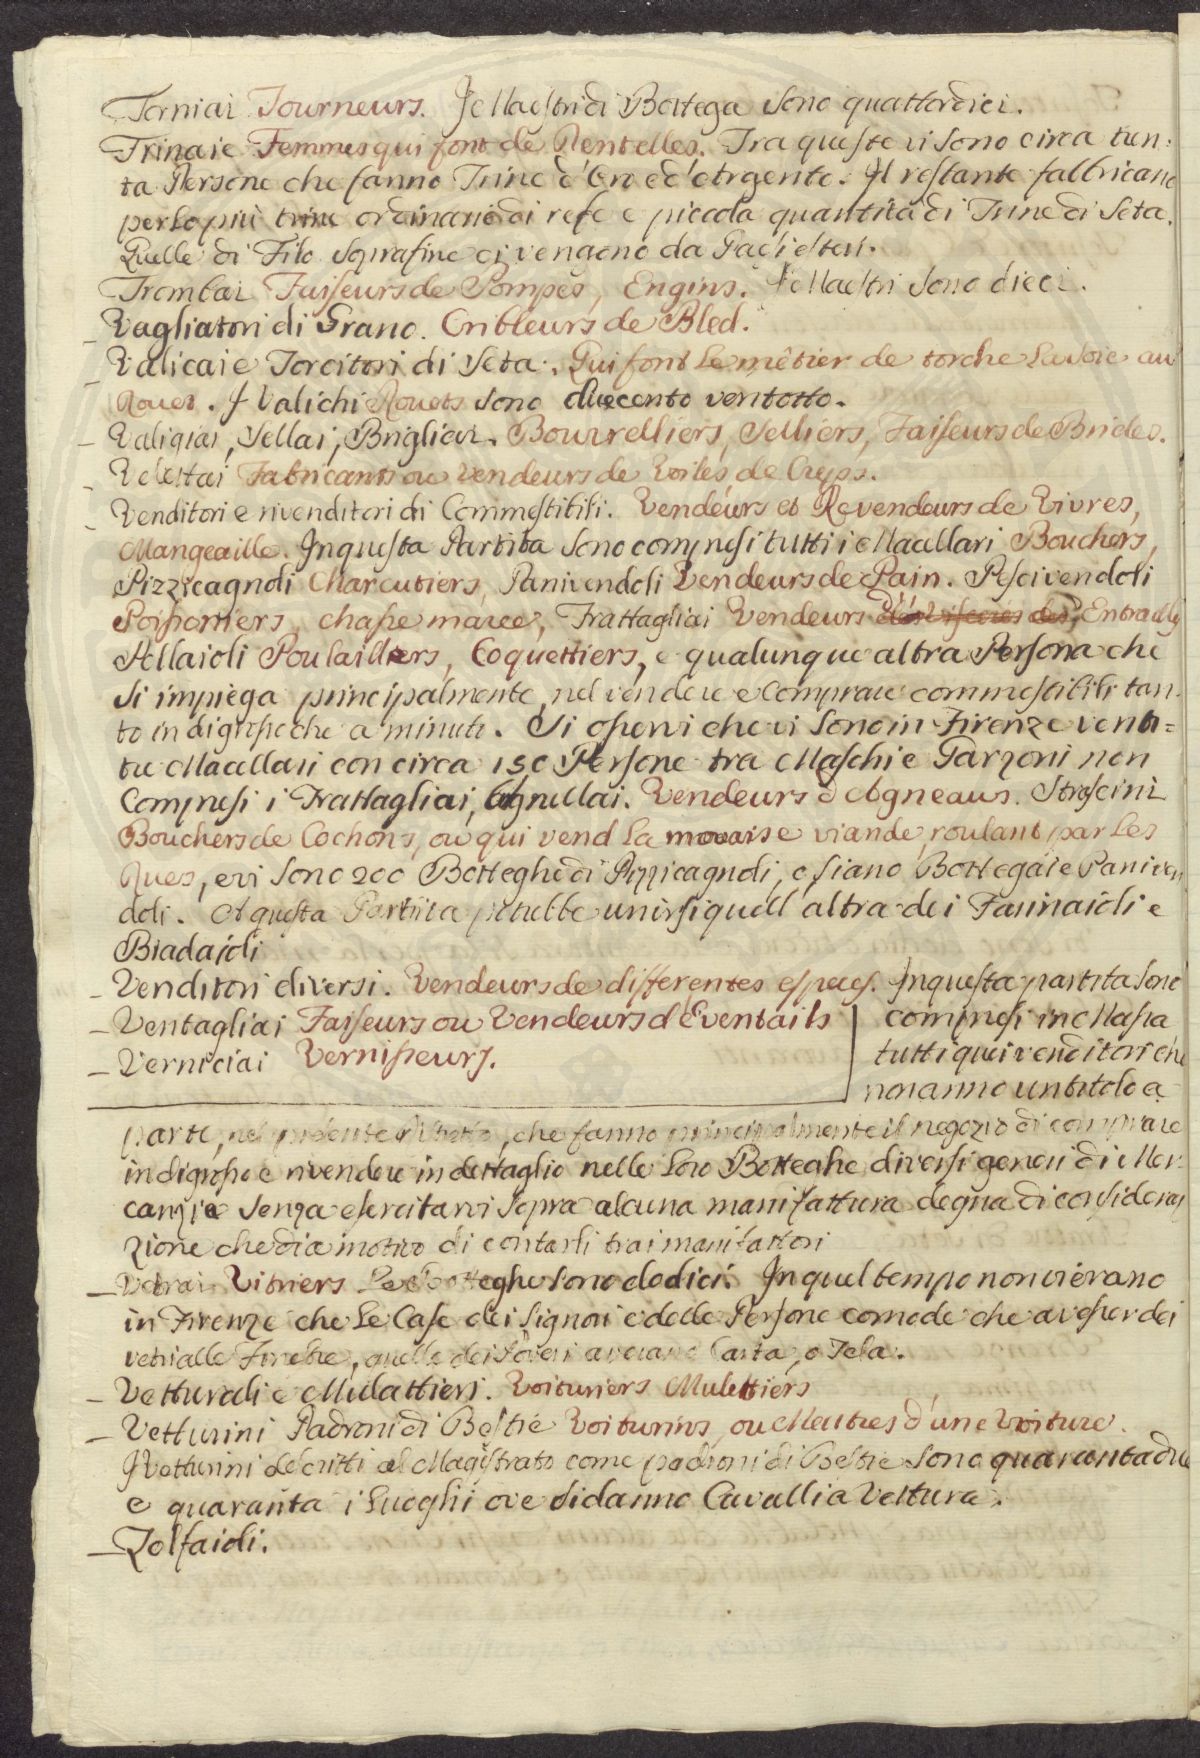 Torniai Tourneurs. I Maestri di Bottega sono quattordici.
Trinaie Femmes qui font de Dentelles. Tra queste vi sono circa tren:
ta Persone che fanno Trine d'Oro e d'Argento. Il restante fabbricano
per lo più trine ordinarie di refe e piccola quantità di Trine di Seta.
Quelle di Filo soprafine ci vengono da
Trombai Faiseurs de Pompes, Engins. I Maestri sono dieci.
_ Vagliatori di Grano. Cribleurs de Bled.
_ Valicai e Torcitori di Seta. Qui font le mêtier de torche la soie au
Rouet. I Valichi Rouets sono duecento ventotto.
_ Valigiai, Sellai, Brigliai. Bourrelliers, Selliers, Faiseurs de Brides.
_ Velettai Fabricants ou vendeurs de Voiles de Creps.
_ Venditori e rivenditori di Commestibili. Vendeurs et Revendeurs de Vivres,
Mangeaille. In questa Partita sono compresi tutti i Macellari Bouchers,
Pizzicagnoli Charcutiers, Panivendoli Vendeurs de Pain. Pescivendoli
Poissoniers, chasse maree, Frattagliai Vendeurs d'Entrailles
Pollaioli Poulaillers, Coquettiers, e qualunque altra Persona che
si impiega principalmente nel vendere e comprare commestibili tan:
to in digrosso che a minuto. Si osservi che vi sono in Firenze venti=
tre Macellari con circa 150 Persone tra Maschi e Garzoni non
compresi i Frattagliai, Agnellai. Vendeurs d'Agneaus. Strascini
Bouchers de Cochons, ou qui vend la movaise viande, roulant par les
Rues, e vi sono 200 Botteghe di Pizzicagnoli, o siano Bottegai e Paniven
doli. A questa Partita potrebbe unirsi quell'altra dei Farinaioli e
Biadaioli
_ Venditori diversi. Vendeurs de differentes especes. In questa partita sono
_ Ventagliai Faiseurs ou Vendeurs d'Eventails
_ Verniciai Vernisseurs.
compresi in Massa
tutti quei venditori che
non anno un titolo a
parte, nel presente Ristretto, che fanno principalmente il negozio di comprare
in digrosso e rivendere in dettaglio nelle loro Botteghe diversi generi di Mer:
canzie senza esercitarvi sopra alcuna manifattura degna di considera
zione che dia motivo di contarli tra i manifattori
_ Vetrai Vitriers Le Botteghe sono dodici. In quel tempo non vi erano
in Firenze che le Case dei Signori e delle Persone comode che avesser dei
vetri alle Finestre, quelle dei Poveri avevano Carta, o Tela.
_ Vetturali e Mulattieri. Voituriers Mulettiers
_ Vetturini Padroni di Bestie Voiturins, ou Maitres d'une Voiture.
I Vetturini descritti al Magistrato come padroni di Bestie sono quarantadue
e quaranta i Luoghi ove si danno Cavalli a Vettura.
_ Zolfaioli.